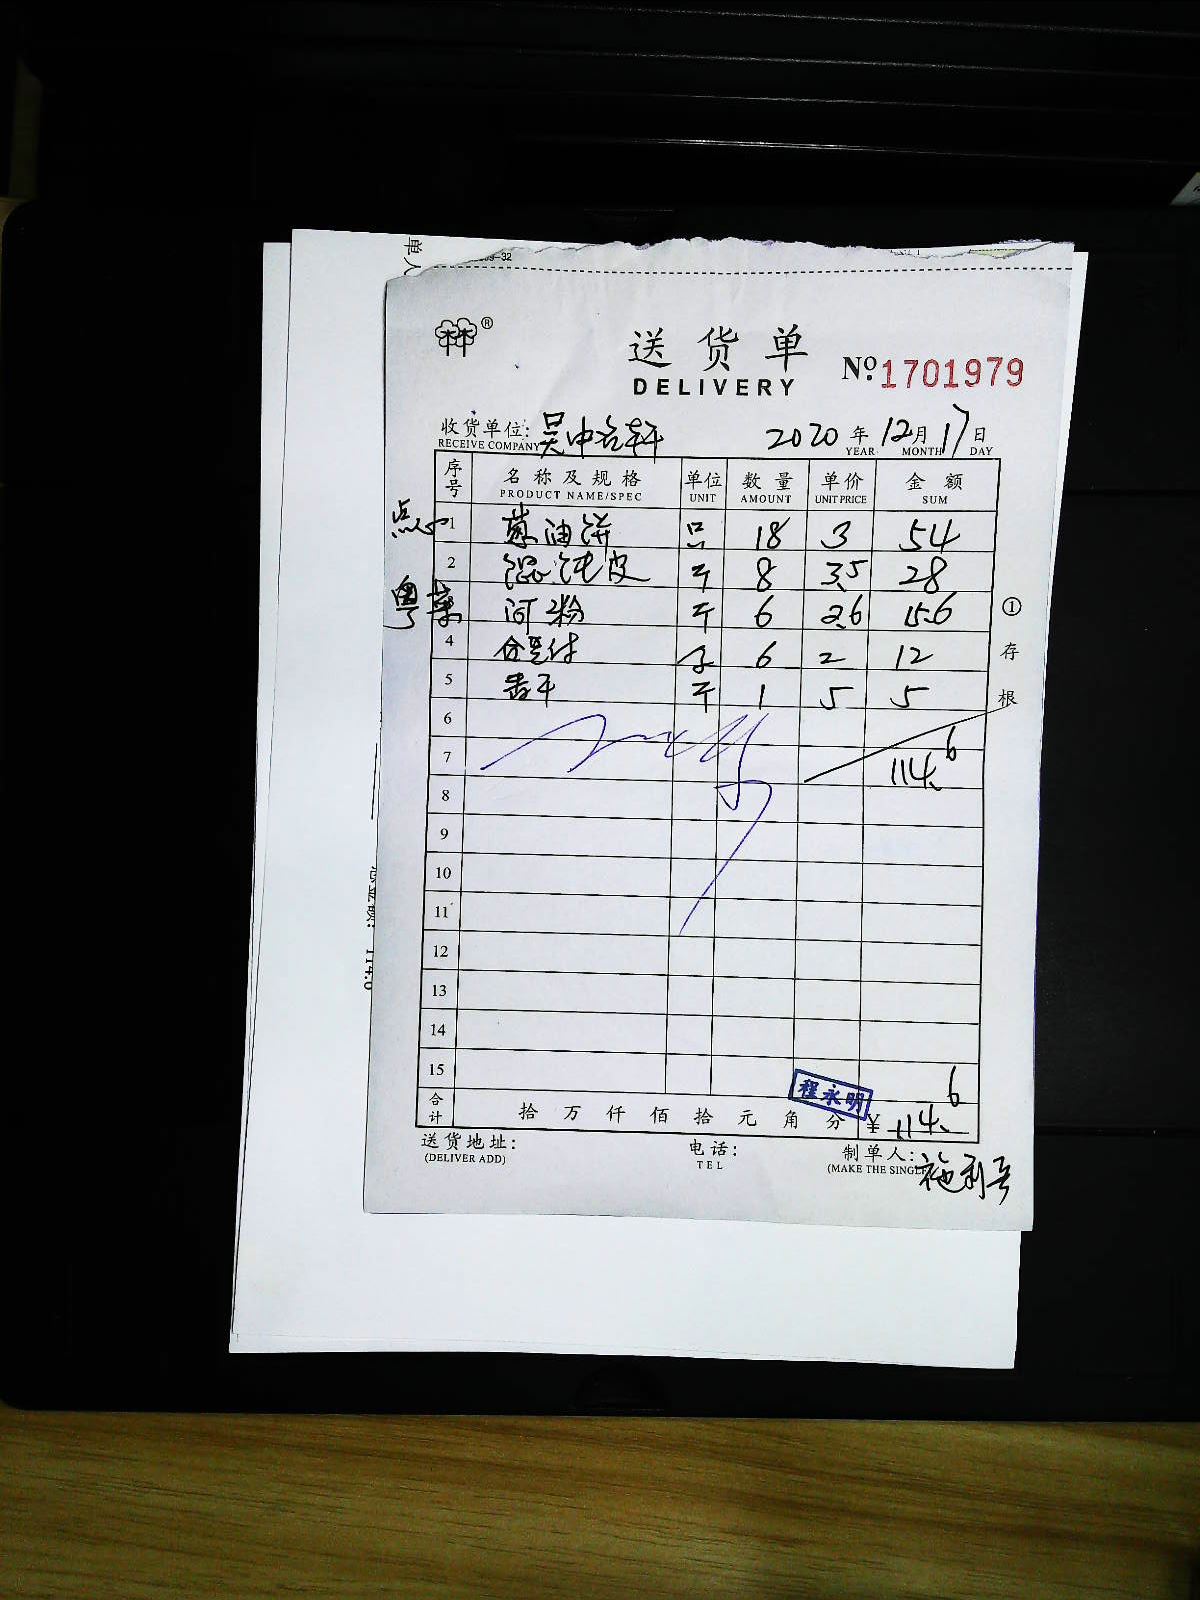 单人
09-32
®
送货单
DELIVERY
№ 1701979
收货单位: 吴中名轩 2020年12月17日
RECEIVE COMPANY YEAR MONTH DAY
序号 名称及规格 单位 数量 单价 金额
PRODUCT NAME/SPEC UNIT AMOUNT UNIT PRICE SUM
点心 1 葱油饼 只 18 3 54
2 馄饨皮 斤 8 3.5 28
粤菜 河粉 斤 6 2.6 15.6
4 6 2 12
5 香干 斤 1 5 5
6
7 114.6
8
9
10
11
12
13
14
15
合计 拾万仟佰拾元角分 ¥114.6
程永明
送货地址: 电话: 制单人:
(DELIVER ADD) TEL (MAKE THE SINGLE
①存根
114.6